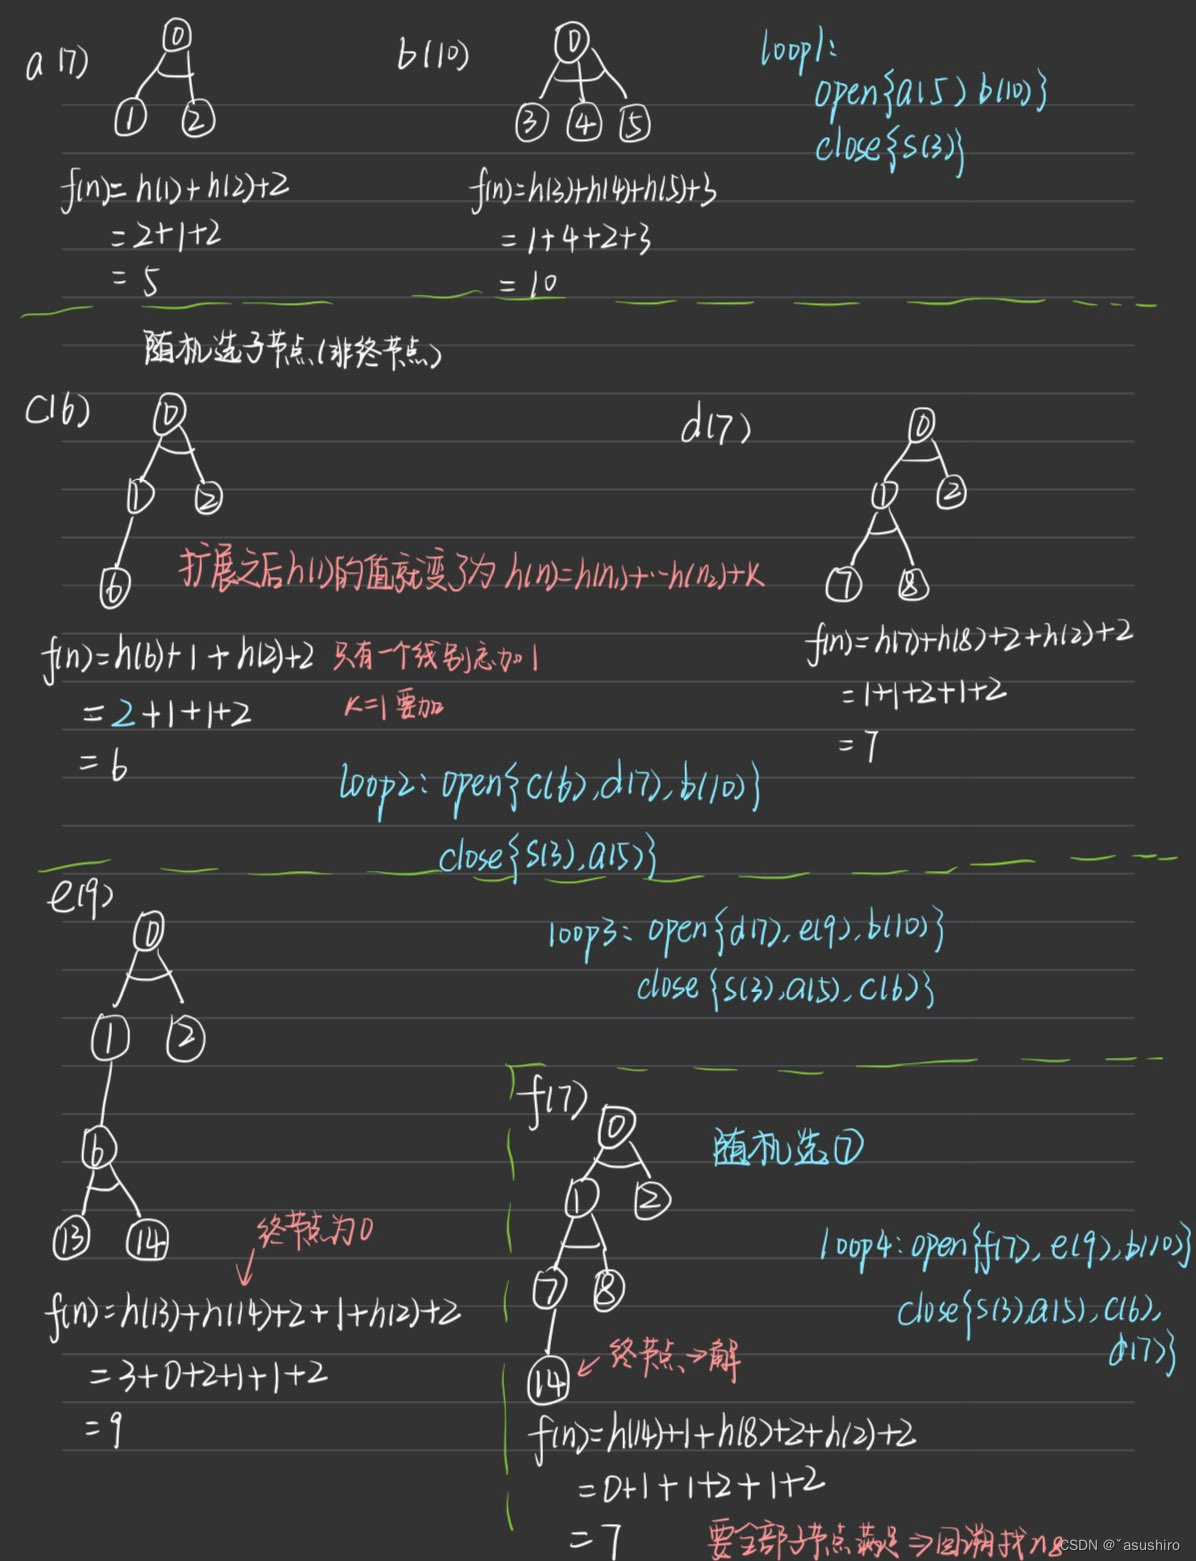 a(7)
0
1 2
f(n)= h(1)+h(2)+2
=2+1+2
= 5
b(10)
0
3 4 5
f(n)=h(3)+h(4)+h(5)+3
= 1+4+2+3
= 10
loop1:
open{a(5) b(10)}
close{s(3)}
随机选子节点(非终节点)
c(6)
0
1 2
6
扩展之后h(1)的值就变了为 h(n)=h(n₁)+…h(n₂)+K
f(n)=h(6)+1+h(2)+2 只有一个线别忘加1
= 2+1+1+2 K=1要加
= 6
d(7)
0
1 2
7 8
f(n)=h(7)+h(8)+2+h(2)+2
=1+1+2+1+2
= 7
loop2: open{c(6),d(7),b(10)}
close{s(3),a(5)}
e(9)
0
1 2
6
13 14
终节点为0
f(n)=h(13)+h(14)+2+1+h(2)+2
=3+0+2+1+1+2
= 9
loop3: open{d(7),e(9),b(10)}
close{s(3),a(5),c(6)}
f(7)
0
1 2
7 8
14
随机选⑦
终节点→解
f(n)=h(14)+1+h(8)+2+h(2)+2
=0+1+1+2+1+2
= 7
loop4: open{f(7),e(9),b(10)}
close{s(3),a(5),c(6),
d(7)}
要全部子节点满足⇒回溯找n8
CSDN @ˇasushiro